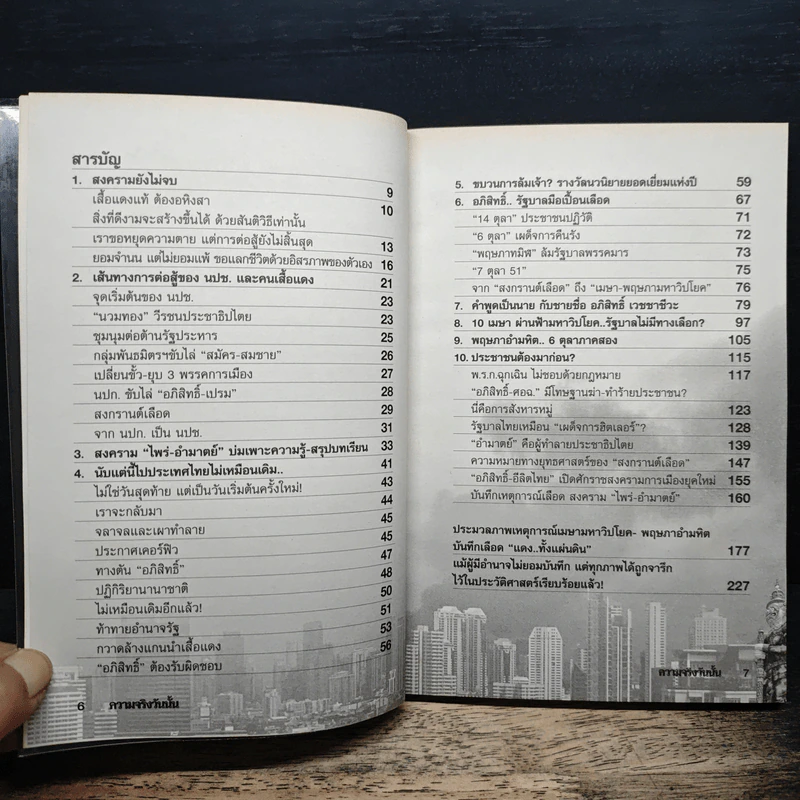 สารบัญ
1. สงครามยังไม่จบ 9
เสื้อแดงแท้ ต้องอหิงสา 10
สิ่งที่ดีงามจะสร้างขึ้นได้ ด้วยสันติวิธีเท่านั้น
เราขอหยุดความตาย แต่การต่อสู้ยังไม่สิ้นสุด 13
ยอมจำนน แต่ไม่ยอมแพ้ ขอแลกชีวิตด้วยอิสรภาพของตัวเอง 16
2. เส้นทางการต่อสู้ของ นปช. และคนเสื้อแดง 21
จุดเริ่มต้นของ นปช. 23
“นวมทอง” วีรชนประชาธิปไตย 23
ชุมนุมต่อต้านรัฐประหาร 25
กลุ่มพันธมิตรฯขับไล่ “สมัคร-สมชาย” 26
เปลี่ยนขั้ว-ยุบ 3 พรรคการเมือง 27
นปก. ขับไล่ “อภิสิทธิ์-เปรม” 28
สงกรานต์เลือด 29
จาก นปก. เป็น นปช. 31
3. สงคราม “ไพร่-อำมาตย์” บ่มเพาะความรู้-สรุปบทเรียน 33
4. นับแต่นี้ไปประเทศไทยไม่เหมือนเดิม.. 41
ไม่ใช่วันสุดท้าย แต่เป็นวันเริ่มต้นครั้งใหม่! 43
เราจะกลับมา 44
จลาจลและเผาทำลาย 45
ประกาศเคอร์ฟิว 45
ทางตัน “อภิสิทธิ์” 47
ปฏิกิริยานานาชาติ 48
ไม่เหมือนเดิมอีกแล้ว! 50
ท้าทายอำนาจรัฐ 51
กวาดล้างแกนนำเสื้อแดง 53
“อภิสิทธิ์” ต้องรับผิดชอบ 56
6 ความจริงวันนั้น
5. ขบวนการล้มเจ้า? รางวัลนวนิยายยอดเยี่ยมแห่งปี 59
6. อภิสิทธิ์.. รัฐบาลมือเปื้อนเลือด 67
“14 ตุลา” ประชาชนปฏิวัติ 71
“6 ตุลา” เผด็จการคืนรัง 72
“พฤษภาทมิฬ” ล้มรัฐบาลพรรคมาร 73
“7 ตุลา 51” 75
จาก “สงกรานต์เลือด” ถึง “เมษา-พฤษภามหาวิปโยค” 76
7. คำพูดเป็นนาย กับชายชื่อ อภิสิทธิ์ เวชชาชีวะ 79
8. 10 เมษา ผ่านฟ้ามหาวิปโยค..รัฐบาลไม่มีทางเลือก? 97
9. พฤษภาอำมหิต.. 6 ตุลาภาคสอง 105
10. ประชาชนต้องมาก่อน? 115
พ.ร.ก.ฉุกเฉิน ไม่ชอบด้วยกฎหมาย 117
“อภิสิทธิ์-ศอฉ.” มีโทษฐานฆ่า-ทำร้ายประชาชน?
นี่คือการสังหารหมู่ 123
รัฐบาลไทยเหมือน “เผด็จการฮิตเลอร์”? 128
“อำมาตย์” คือผู้ทำลายประชาธิปไตย 139
ความหมายทางยุทธศาสตร์ของ “สงกรานต์เลือด” 147
“อภิสิทธิ์-อีลิตไทย” เปิดศักราชสงครามการเมืองยุคใหม่ 155
บันทึกเหตุการณ์เลือด สงคราม “ไพร่-อำมาตย์” 160
ประมวลภาพเหตุการณ์เมษามหาวิปโยค- พฤษภาอำมหิต
บันทึกเลือด “แดง..ทั้งแผ่นดิน” 177
แม้ผู้มีอำนาจไม่ยอมบันทึก แต่ทุกภาพได้ถูกจารึก
ไว้ในประวัติศาสตร์เรียบร้อยแล้ว! 227
ความจริงวันนั้น 7